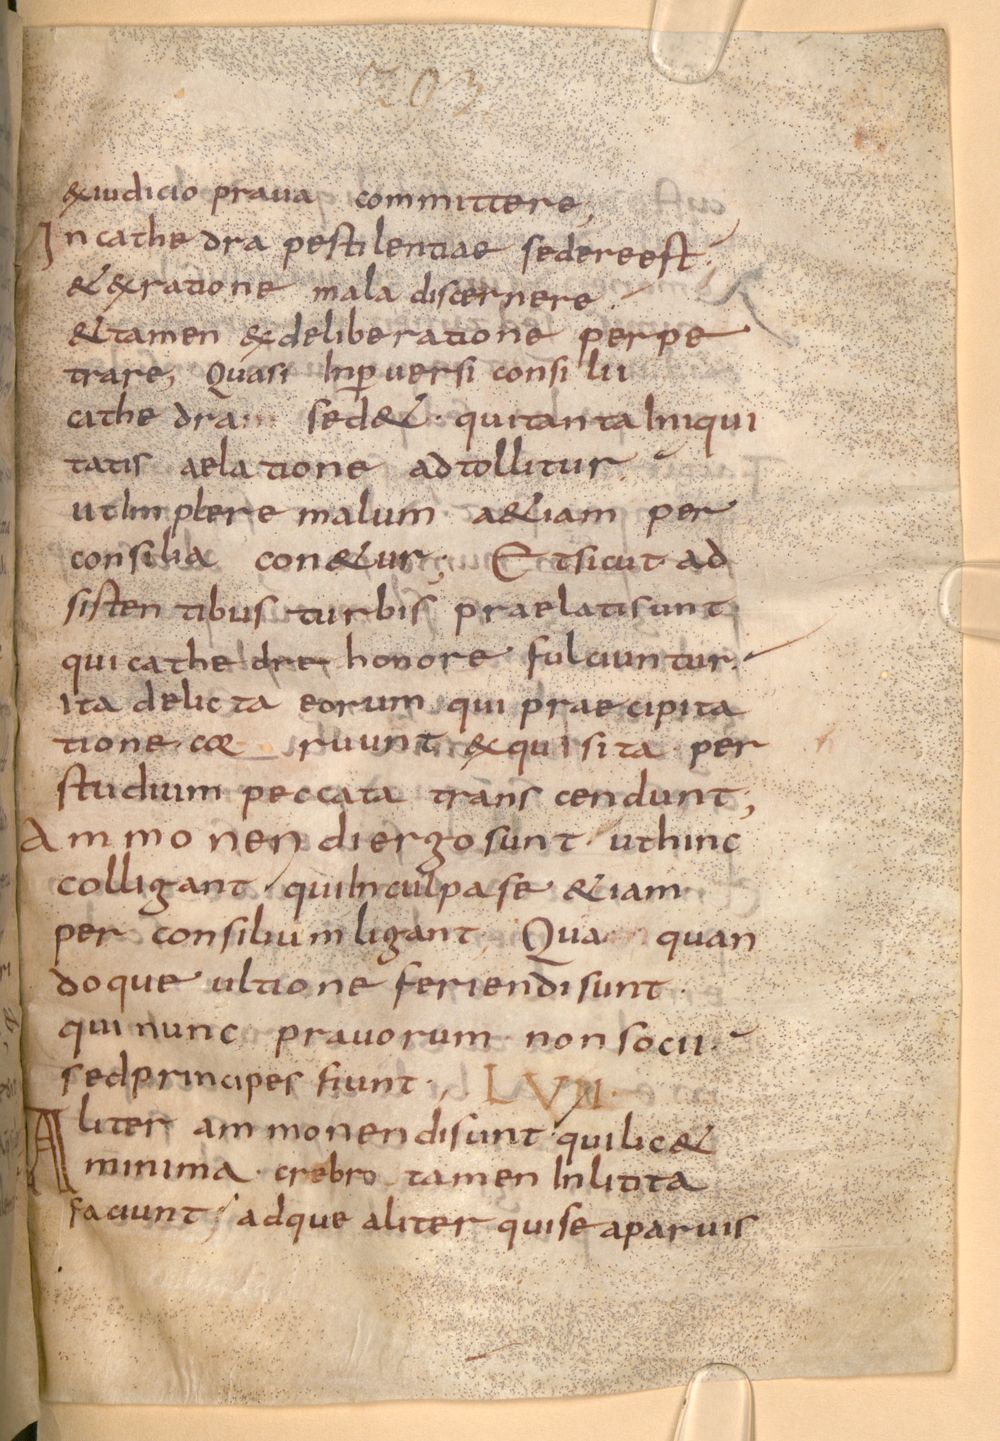 203
exiudicio praua committere;
Incathedra pestilentiae sedereest.
& exratione mala discernere.
&tamen exdeliberatione perpe
trare; Quasi inperuersi consilii
cathedra sed&. quitanta iniqui
tatis aelatione adtollitur.
utimplere malum a&iam per
consilia con&ur; Etsicut ad
sistentibus turbis praelatisunt
quicathedre honore fulciuntur.
ita delicta eorum qui praecipita
tione coe ruunt exquisita per
studium peccata transcendunt;
Ammonendi ergo sunt uthinc
colligant. quiinculpa se &iam
per consilium ligant; Qua quan
doque ultione feriendisunt.
qui nunc prauorum non socii.
sedprincipes fiunt. LVII.
Aliter ammonendisunt quilic&
minima. crebro tamen inlitita
faciunt; adque aliter quise aparuis